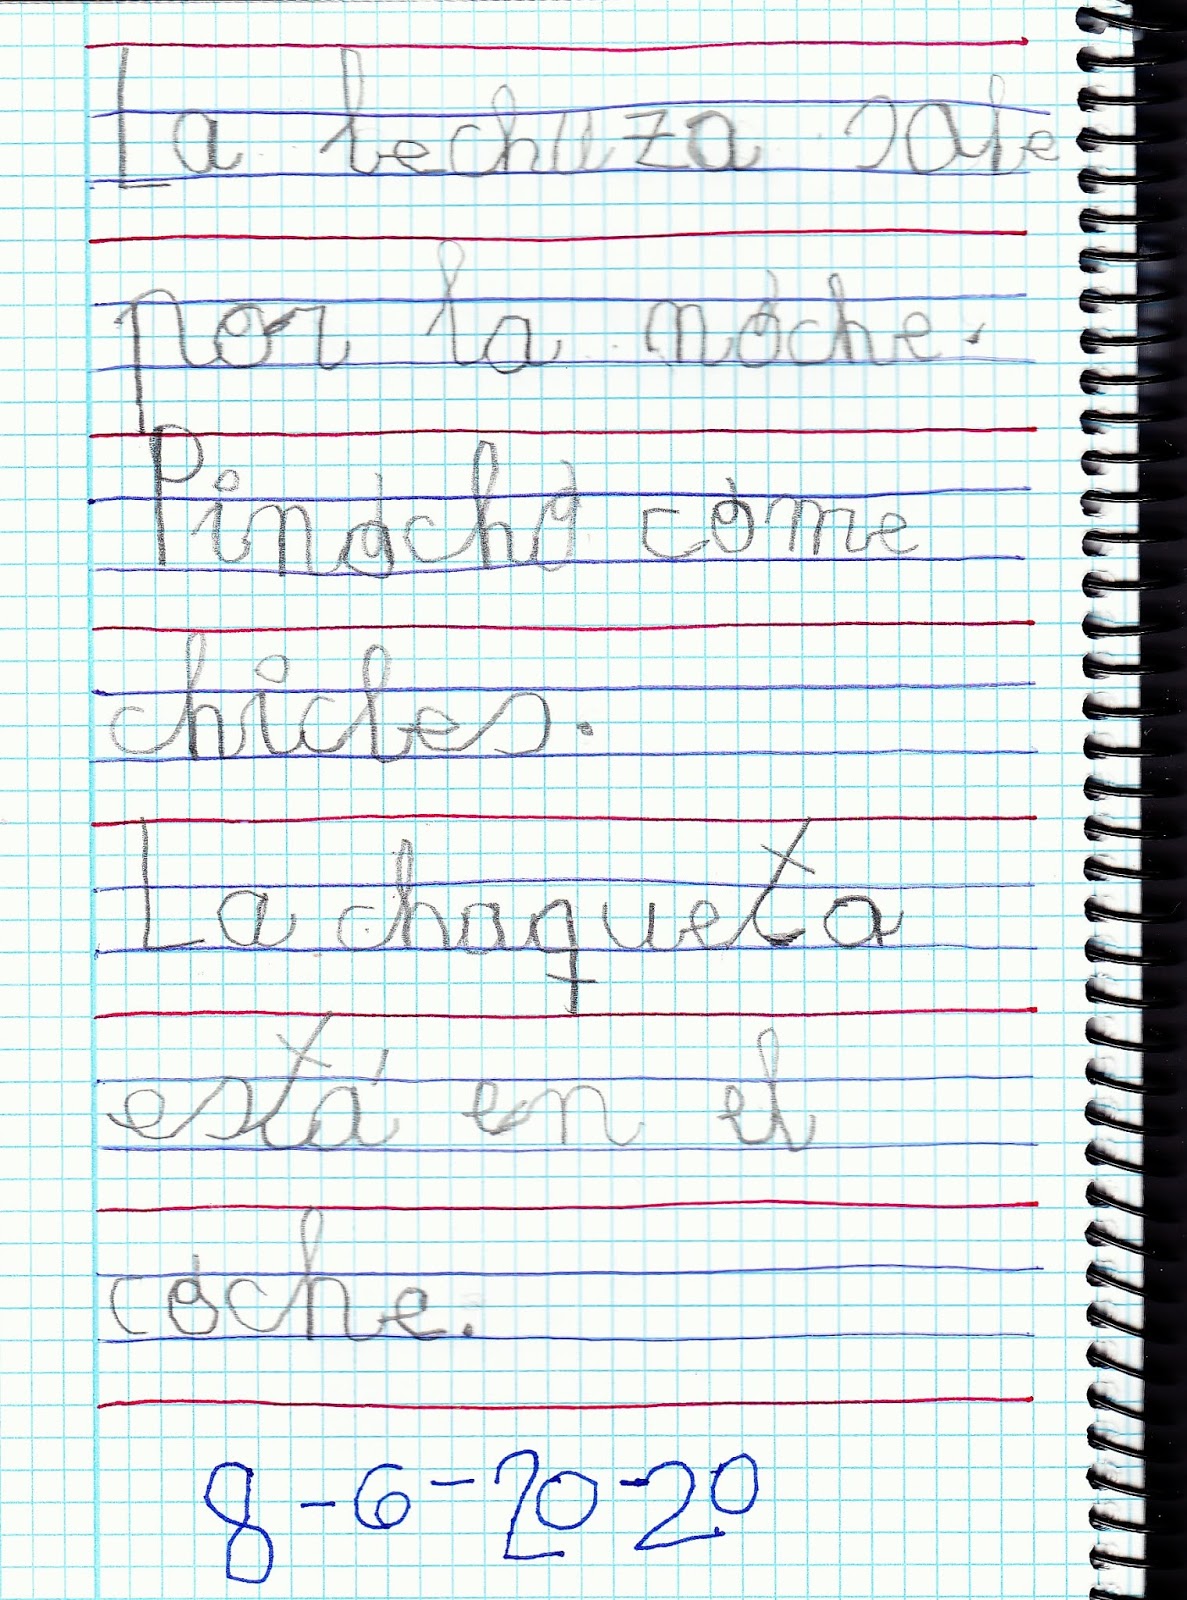 La lechuza sale
por la noche.
Pinocho come
chicles.
La chaqueta
está en el
coche.
8-6-20-20